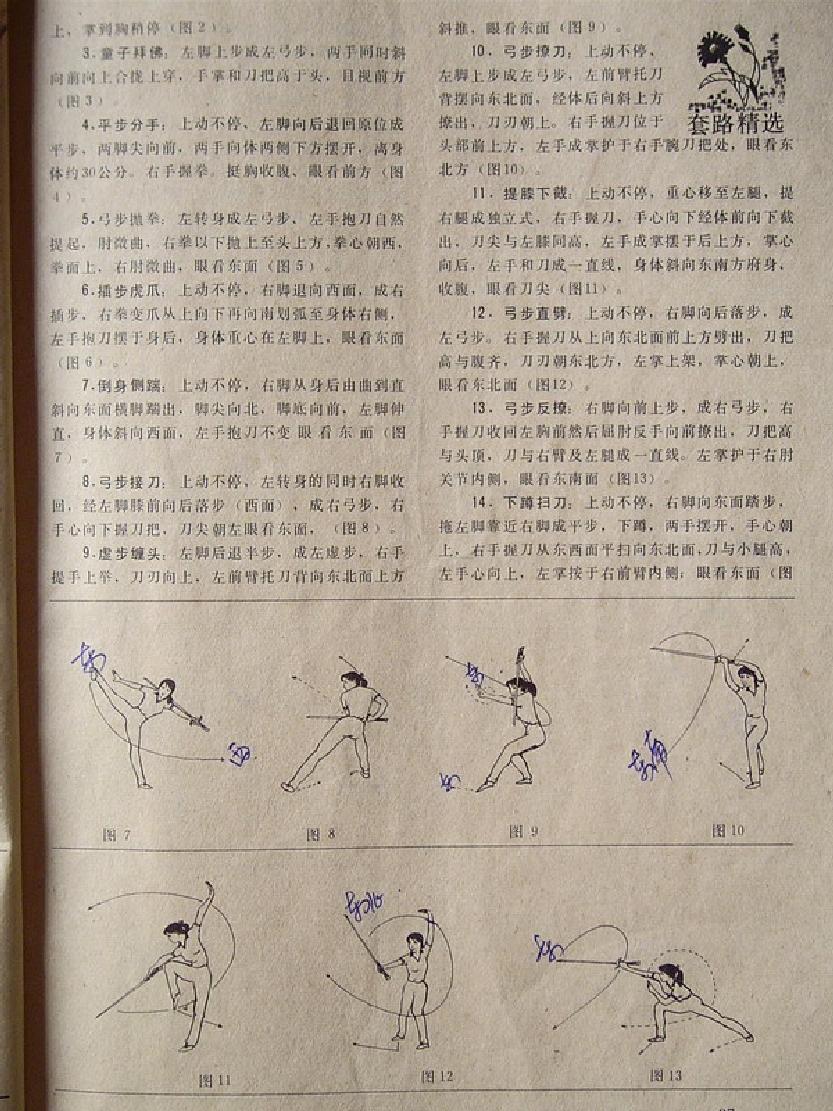 上，掌到胸稍停（图2）。
3.童子拜佛：左脚上步成左弓步，两手同时斜
向前向上合拢上穿，手掌和刀把高于头，目视前方
（图3）。
4.平步分手：上动不停、左脚向后退回原位成
平步，两脚尖向前，两手向体两侧下方摆开，离身
体约30公分。右手握拳。挺胸收腹、眼看前方（图
4）。
5.弓步抛拳：左转身成左弓步，左手抱刀自然
提起，肘微曲，右拳以下抛上至头上方，拳心朝西，
拳面上，右肘微曲，眼看东面（图5）。
6.插步虎爪：上动不停，右脚退向西面，成右
插步，右拳变爪从上向下再向南划弧至身体右侧，
左手抱刀摆于身后，身体重心在左脚上，眼看东面
（图6）。
7.倒身侧踹：上动不停，右脚从身后由曲到直
斜向东面横脚踹出，脚尖向北，脚底向前，左脚伸
直，身体斜向西面，左手抱刀不变眼看东面（图
7）。
8.弓步接刀：上动不停，左转身的同时右脚收
回，经左脚膝前向后落步（西面），成右弓步，右
手心向下握刀把，刀尖朝左眼看东面，（图8）。
9.虚步缠头：左脚后退半步，成左虚步，右手
提手上举，刀刃向上，左前臂托刀背向东北面上方
斜推，眼看东面（图9）。
10．弓步撩刀：上动不停，
左脚上步成左弓步，左前臂托刀
背摆向东北面，经体后向斜上方
撩出，刀刃朝上。右手握刀位于
头部前上方，左手成掌护于右手腕刀把处，眼看东
北方（图10）。
11．提膝下截：上动不停，重心移至左腿，提
右腿成独立式，右手握刀，手心向下经体前向下截
出，刀尖与左膝同高，左手成掌摆于后上方，掌心
向后，左手和刀成一直线，身体斜向东南方府身，
收腹，眼看刀尖（图11）。
12．弓步直劈：上动不停，右脚向后落步，成
左弓步。右手握刀从上向东北面前上方劈出，刀把
高与腹齐，刀刃朝东北方，左掌上架，掌心朝上，
眼看东北面（图12）。
13．弓步反撩：右脚向前上步，成右弓步，右
手握刀收回左胸前然后屈肘反手向前撩出，刀把高
与头顶，刀与右臂及左腿成一直线。左掌护于右肘
关节内侧，眼看东南面（图13）。
14．下蹲扫刀：上动不停，右脚向东面踏步，
拖左脚靠近右脚成平步，下蹲，两手摆开，手心朝
上，右手握刀从东西面平扫向东北面，刀与小腿高，
左手心向上，左掌按于右前臂内侧；眼看东面（图
套路精选
图7
图8
图9
图10
图11
图12
图13